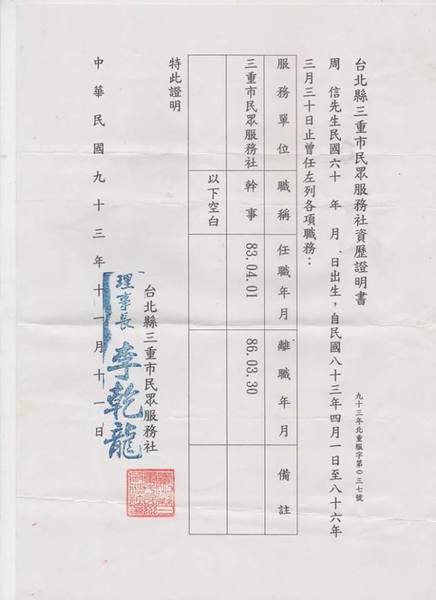 台北縣三重市民眾服務社資歷證明書
九十三年北重服字第0三七號
周 信先生民國六十 年 月 日出生，自民國八十三年四月一日至八十六年
三月三十日止曾任左列各項職務：
服務單位 職稱 任職年月 離職年月 備註
三重市民眾服務社 幹事 83.04.01 86.03.30
以下空白
特此證明
台北縣三重市民眾服務社
理事長 李乾龍
中華民國九十三年十一月十一日